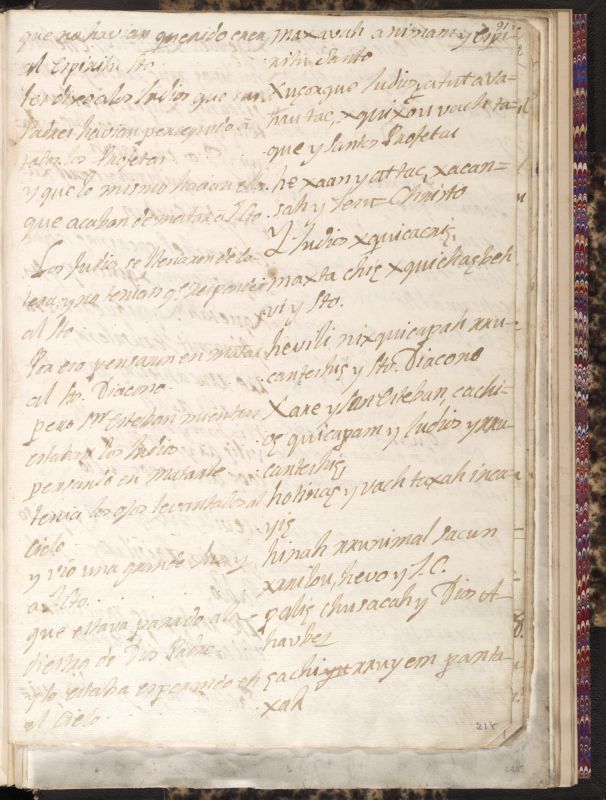 91
que no havian querido creer
al Espiritu Sto.
les dixo a los Judios que sus
Padres havian perseguido a
todos los Profetas
y que lo mismo hacian ellos
que acaban de matar a J. Cto.
Los Judios se llenaron de co
lera, y no tenian q.e responder
al Sto.
Por eso pensaron en matar
al Sto. Diacono.
pero Sn. Esteban mientras
estaban los Judios
pensando en matarle
tenia los ojos levantados al
cielo
y vio una grande luz y
a J. Cto.
que estava parado a la
diestra de Dios Padre.
y lo estaba esperando en
el cielo.
maxavah animam y Espi-
ritu Santo
Xuçorque Judios, catut ava-
hau tac, xquixou vach ta-
que y Santos Profetas
he xaan y attac, xacan-
sah y Jesu Christo
Y Judios xquicacriç,
maxta chiç xquichaç beh
vi y Sto.
hevili nixquicupah xxu-
canteshiç y Sto. Diacono
Xare y San Esteban, cachi-
oç quicupam y Judios y xxu
canteshiç
hotinaç y vach taxah incu-
yiç
hinah xxunimal sacun
xxnilou, hevo y J. C.
palic chusacah y Dios A-
havbel
çachi xxuy em panta-
xah
215
225